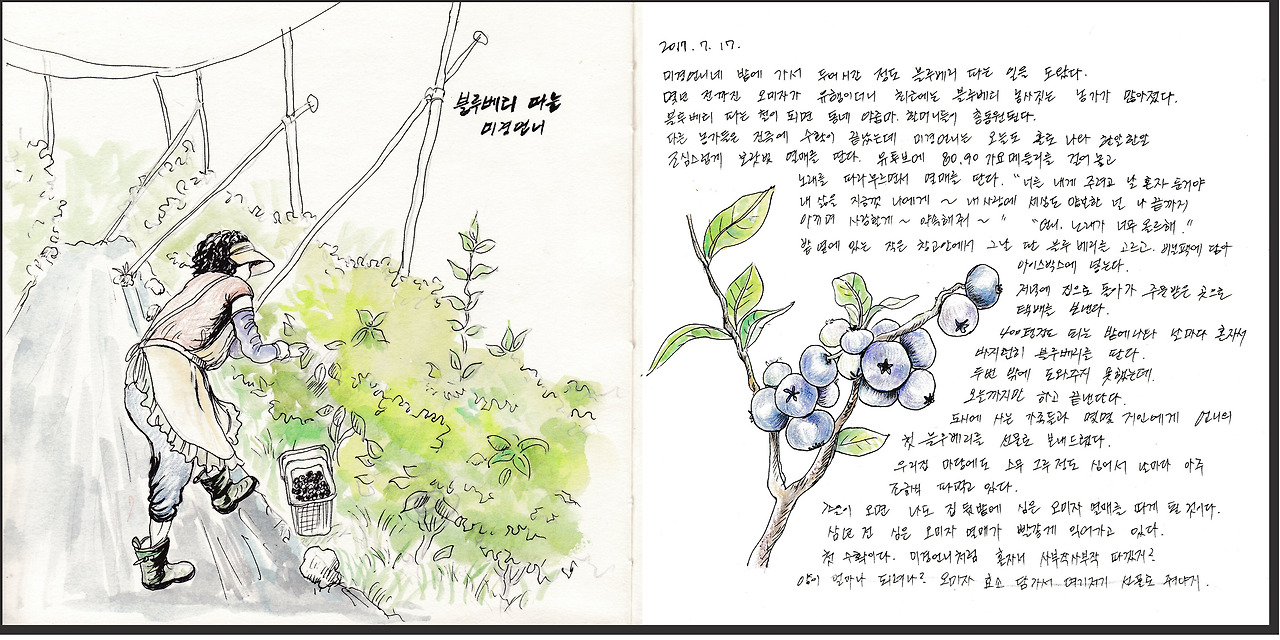 블루베리 따는
미경언니
2017. 7. 17.
미경언니네 밭에 가서 두어시간 정도 블루베리 따는 일을 도왔다.
몇년 전까진 오미자가 유행이더니 최근에는 블루베리 농사짓는 농가가 많아졌다.
블루베리 따는 철이 되면 동네 아줌마. 할머니들이 총동원된다.
다른 농가들은 진즉에 수확이 끝났는데 미경언니는 오늘도 홀로 나와 한알한알
조심스럽게 보랏빛 열매를 딴다. 유튜브에 80.90 가요메들리를 걸어놓고
노래를 따라부르면서 열매를 딴다. "너를 내게 주려고 날 혼자 둔거야
내 삶은 지금껏 나에게 ~ 내 사랑에 세상도 양보한 넌 나 끝까지
아끼며 사랑할게 ~ 약속해줘 ~ " "언니. 노래가 너무 올드해."
밭 옆에 있는 작은 창고안에서 그날 딴 블루베리를 고르고. 비닐팩에 담아
아이스박스에 넣는다.
저녁에 집으로 돌아가 주문받은 곳으로
택배를 보낸다.
400평정도 되는 밭에나와 날마다 혼자서
바지런히 블루베리를 딴다.
두번 밖에 도와주지 못했는데.
오늘까지만 하고 끝낸단다.
도시에 사는 가족들과 몇몇 지인에게 언니의
첫 블루베리를 선물로 보내드렸다.
우리집 마당에도 스무 그루 정도 심어서 날마다 아주
조금씩 따먹고 있다.
가을이 오면 나도 집 뒷밭에 심은 오미자 열매를 따게 될 것이다.
삼년 전 심은 오미자 열매가 빨갛게 익어가고 있다.
첫 수확이다. 미경언니처럼 혼자서 사부작사부작 따겠지?
양이 얼마나 되려나? 오미자 효소 담가서 여기저기 선물로 줘야지.